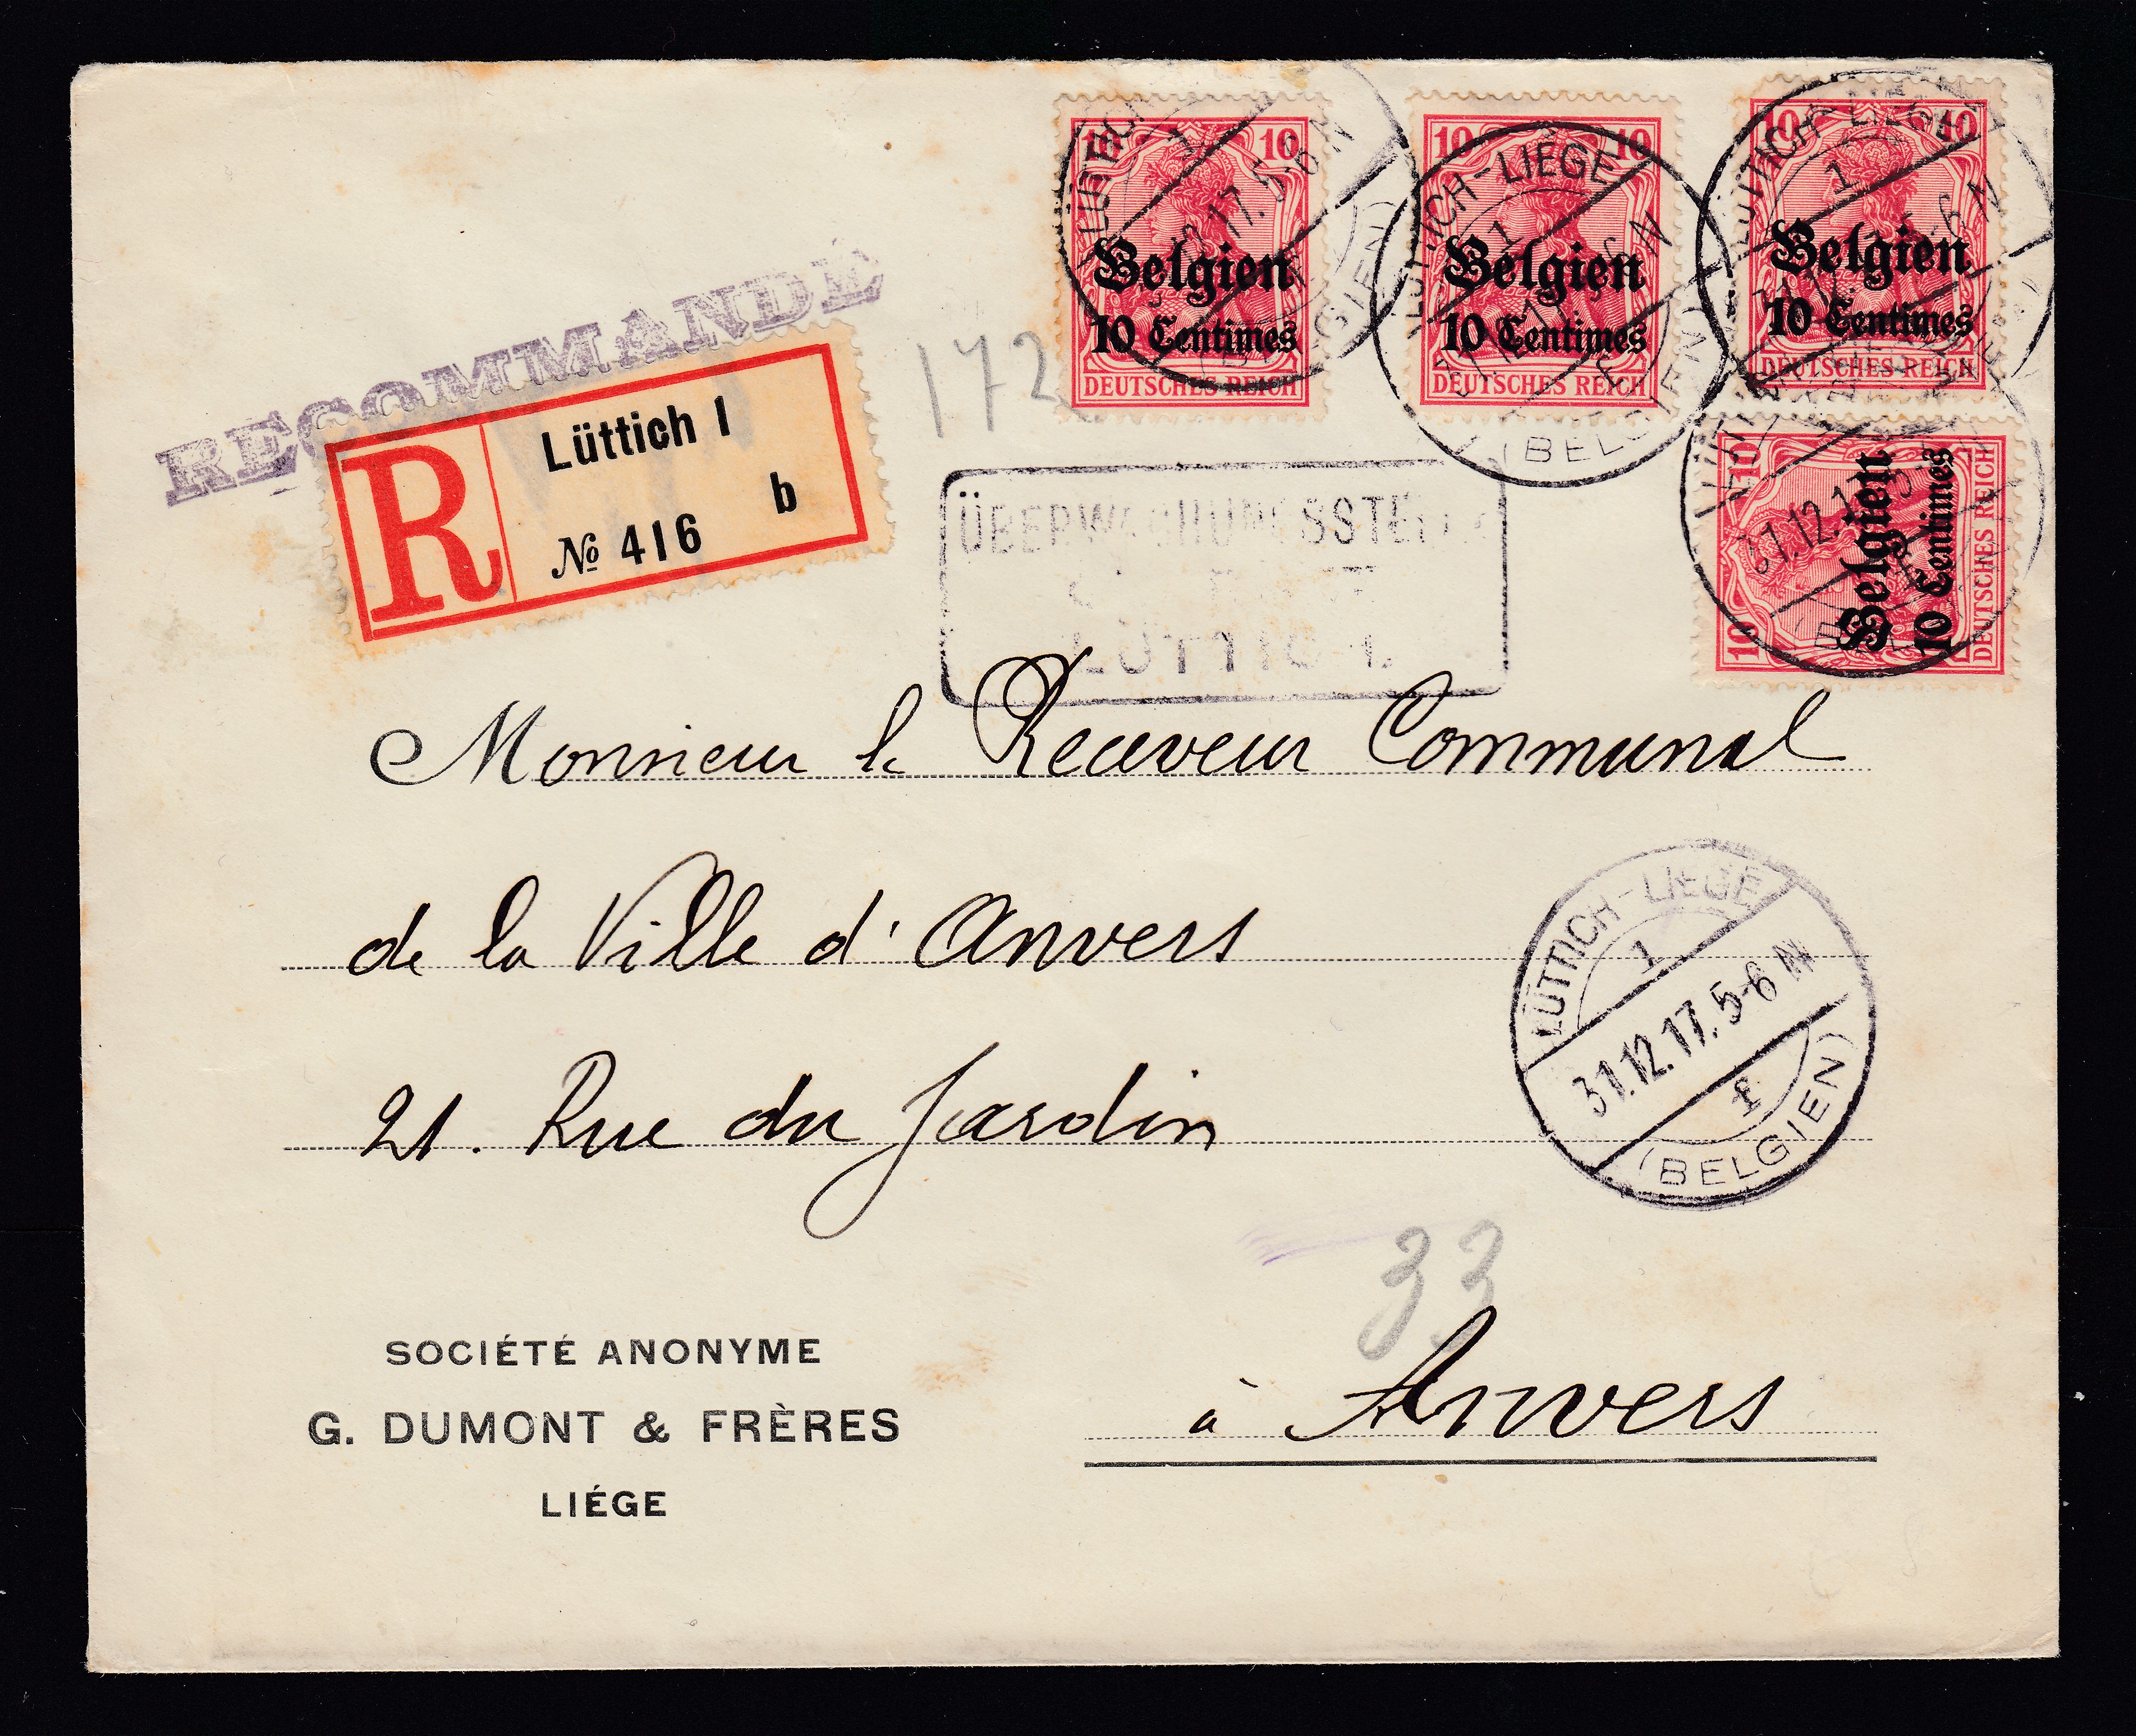 RECOMMANDÉ
R
Lüttich 1
b
№ 416
172
10 10
Belgien
10 Centimes
DEUTSCHES REICH
10 10
Belgien
10 Centimes
DEUTSCHES REICH
10 10
Belgien
10 Centimes
DEUTSCHES REICH
10 10
Belgien
10 Centimes
DEUTSCHES REICH
LÜTTICH-LIÉGE
1
17. 5-6 N
LÜTTICH-LIÉGE
1
(BELGIEN)
LÜTTICH-LIÉGE
1
5-6 N
31.12.17
ÜBERWACHUNGSSTELLE
LÜTTICH.
Monsieur le Receveur Communal
de la Ville d'Anvers
21. Rue du Jardin
LÜTTICH-LIÉGE
1
31.12.17. 5-6 N
f
(BELGIEN)
33
à Anvers
SOCIÉTÉ ANONYME
G. DUMONT & FRÈRES
LIÉGE